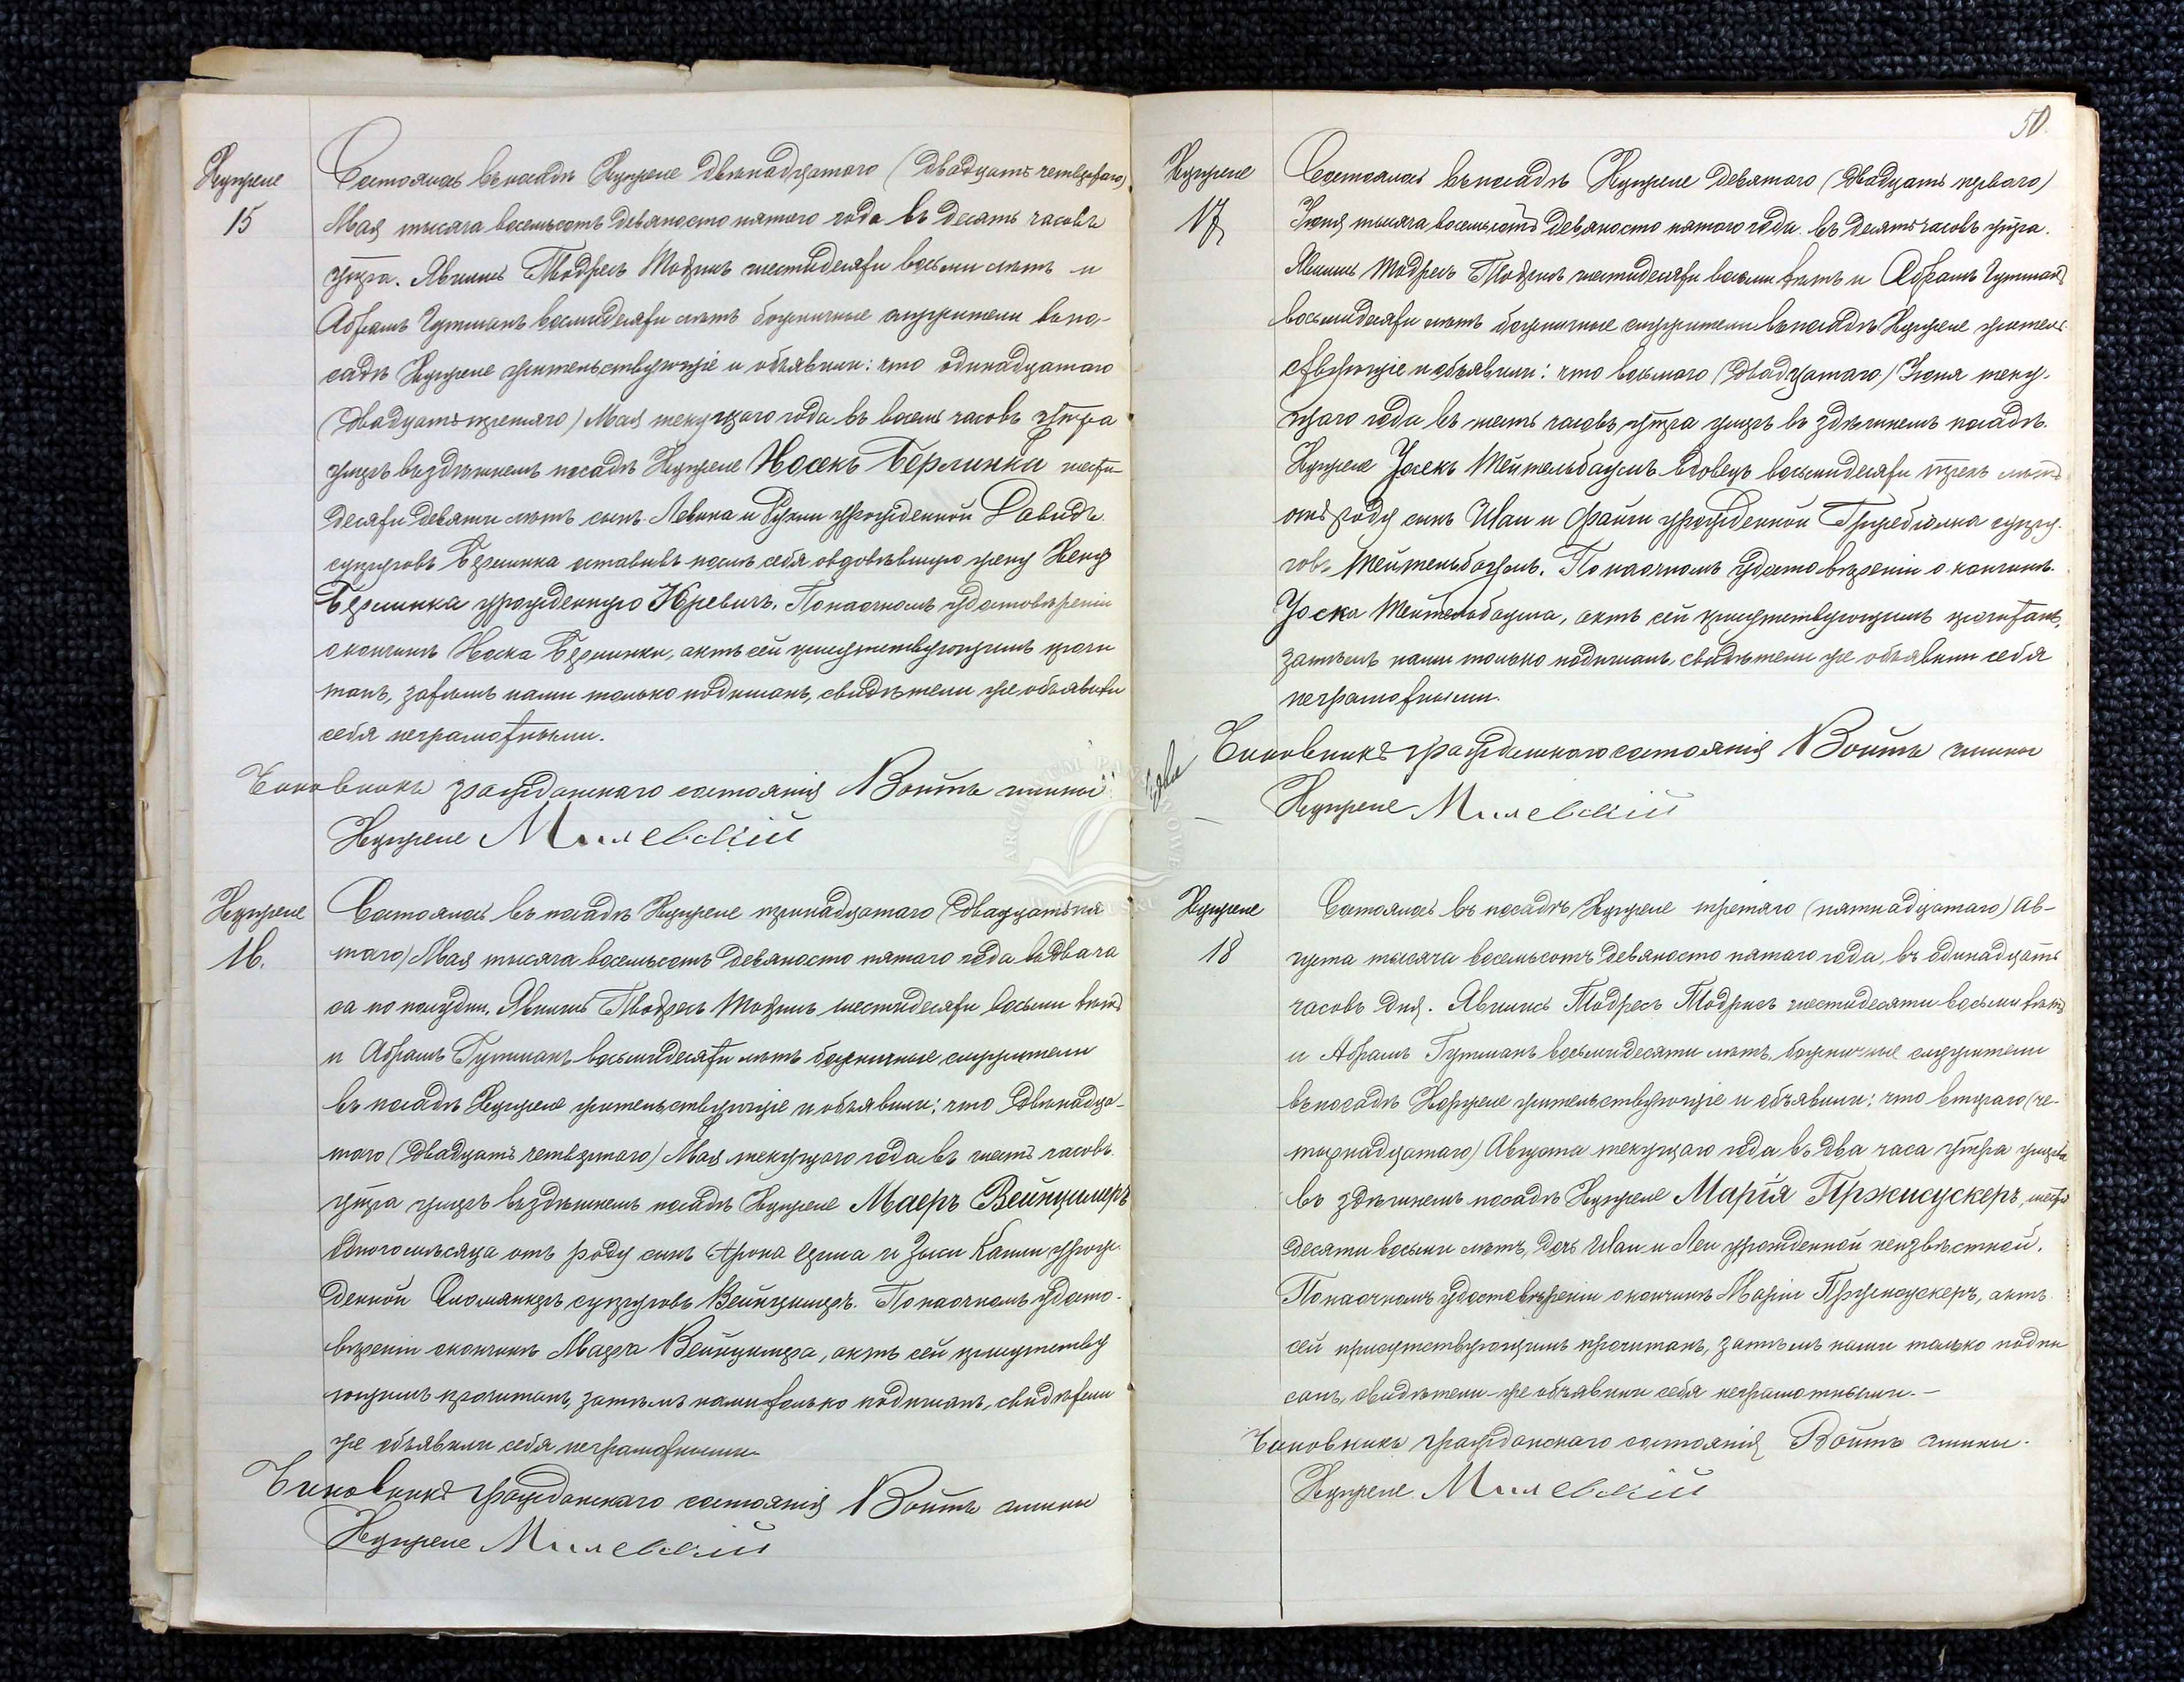 Нуржене
15
Состоялось въ посадѣ Нуржене двѣнадцатаго (двадцать четвертаго)
Мая тысяча восемьсотъ девяносто пятаго года въ десять часовъ
утра. Явились Тодресъ Тодрисъ шестидесяти восьми лѣтъ и
Абрамъ Гутманъ восмидесяти лѣтъ божничные служители въ по-
садѣ Нуржене жительствующіе и объявили: что одинадцатаго
(двадцать третяго) Мая текущаго года въ восемь часовъ утра
умеръ въ здѣшнемъ посадѣ Нуржене Носекъ Берлинка шести-
десяти девяти лѣтъ сынъ Левка и Рухли урожденной Давидъ
супруговъ Берлинка оставивъ послѣ себя овдовѣвшую жену Хену
Берлинка урожденную Юревичъ. По наочномъ удостовѣреніи
о кончинѣ Носка Берлинки, актъ сей присутствующимъ прочи
танъ, затѣмъ нами только подписанъ, свидѣтели же объявили
себя неграмотными.
Чиновникъ гражданскаго состоянія Войтъ гмины
Нуржене Милевскій
Нуржене
16.
Состоялось въ посадѣ Нуржене тринадцатаго (двадцать пя
таго) Мая тысяча восемьсотъ девяносто пятаго года въ два ча
са по полудни. Явились Тодресъ Тодрисъ шестидесяти восьми лѣтъ
и Абрамъ Гутманъ восьмидесяти лѣтъ божничные служители
въ посадѣ Нуржене жительствующіе и объявили: что двѣнадца-
таго (двадцать четвертаго) Мая текущаго года въ шесть часовъ
утра умеръ въ здѣшнемъ посадѣ Нуржене Маеръ Вейнцимеръ
одного мѣсяца отъ роду сынъ Арона и Зыси урож-
денной супруговъ Вейнцимеръ. По наочномъ удосто-
вѣреніи о кончинѣ Маера Вейнцимера, актъ сей присутству
ющимъ прочитанъ, затѣмъ нами только подписанъ, свидѣтели
же объявили себя неграмотными
Чиновникъ гражданскаго состоянія Войтъ гмины
Нуржене Милевскій
50.
Нуржене
17
Состоялось въ посадѣ Нуржене девятаго (двадцать перваго)
Іюня тысяча восемьсотъ девяносто пятаго года въ десять часовъ утра.
Явились Тодресъ Тодрисъ шестидесяти восьми лѣтъ и Абрамъ Гутманъ
восьмидесяти лѣтъ божничные служители въ посадѣ Нуржене житель-
ствующіе и объявили: что восьмого (двадцатаго) Іюня теку-
щаго года въ шесть часовъ утра умеръ въ здѣшнемъ посадѣ
Нуржене Іосекъ Тейтельбаумъ вдовецъ восьмидесяти трехъ лѣтъ
отъ роду сынъ Шаи и Файги урожденной супру-
говъ Тейтельбаумъ. По наочномъ удостовѣреніи о кончинѣ
Іоска Тейтельбаума, актъ сей присутствующимъ прочитанъ,
затѣмъ нами только подписанъ, свидѣтели же объявили себя
неграмотными.
Чиновникъ гражданскаго состоянія Войтъ гмины
Нуржене Милевскій
Нуржене
18
Состоялось въ посадѣ Нуржене третяго (пятнадцатаго) Ав-
густа тысяча восемьсотъ девяносто пятаго года, въ одинадцать
часовъ дня. Явились Тодресъ Тодрисъ шестидесяти восьми лѣтъ
и Абрамъ Гутманъ восьмидесяти лѣтъ, божничные служители
въ посадѣ Нуржене жительствующіе и объявили: что втораго (че-
тырнадцатаго) Августа текущаго года въ два часа утра умерла
въ здѣшнемъ посадѣ Нуржене Марія Пржисускеръ, шести
десяти восьми лѣтъ, дочь Шаи и Леи урожденной неизвѣстной.
По наочномъ удостовѣреніи о кончинѣ Маріи Пржисускеръ, актъ
сей присутствующимъ прочитанъ, затѣмъ нами только подпи
санъ, свидѣтели-же объявили себя неграмотными.—
Чиновникъ гражданскаго состоянія Войтъ гмины
Нуржене Милевскій